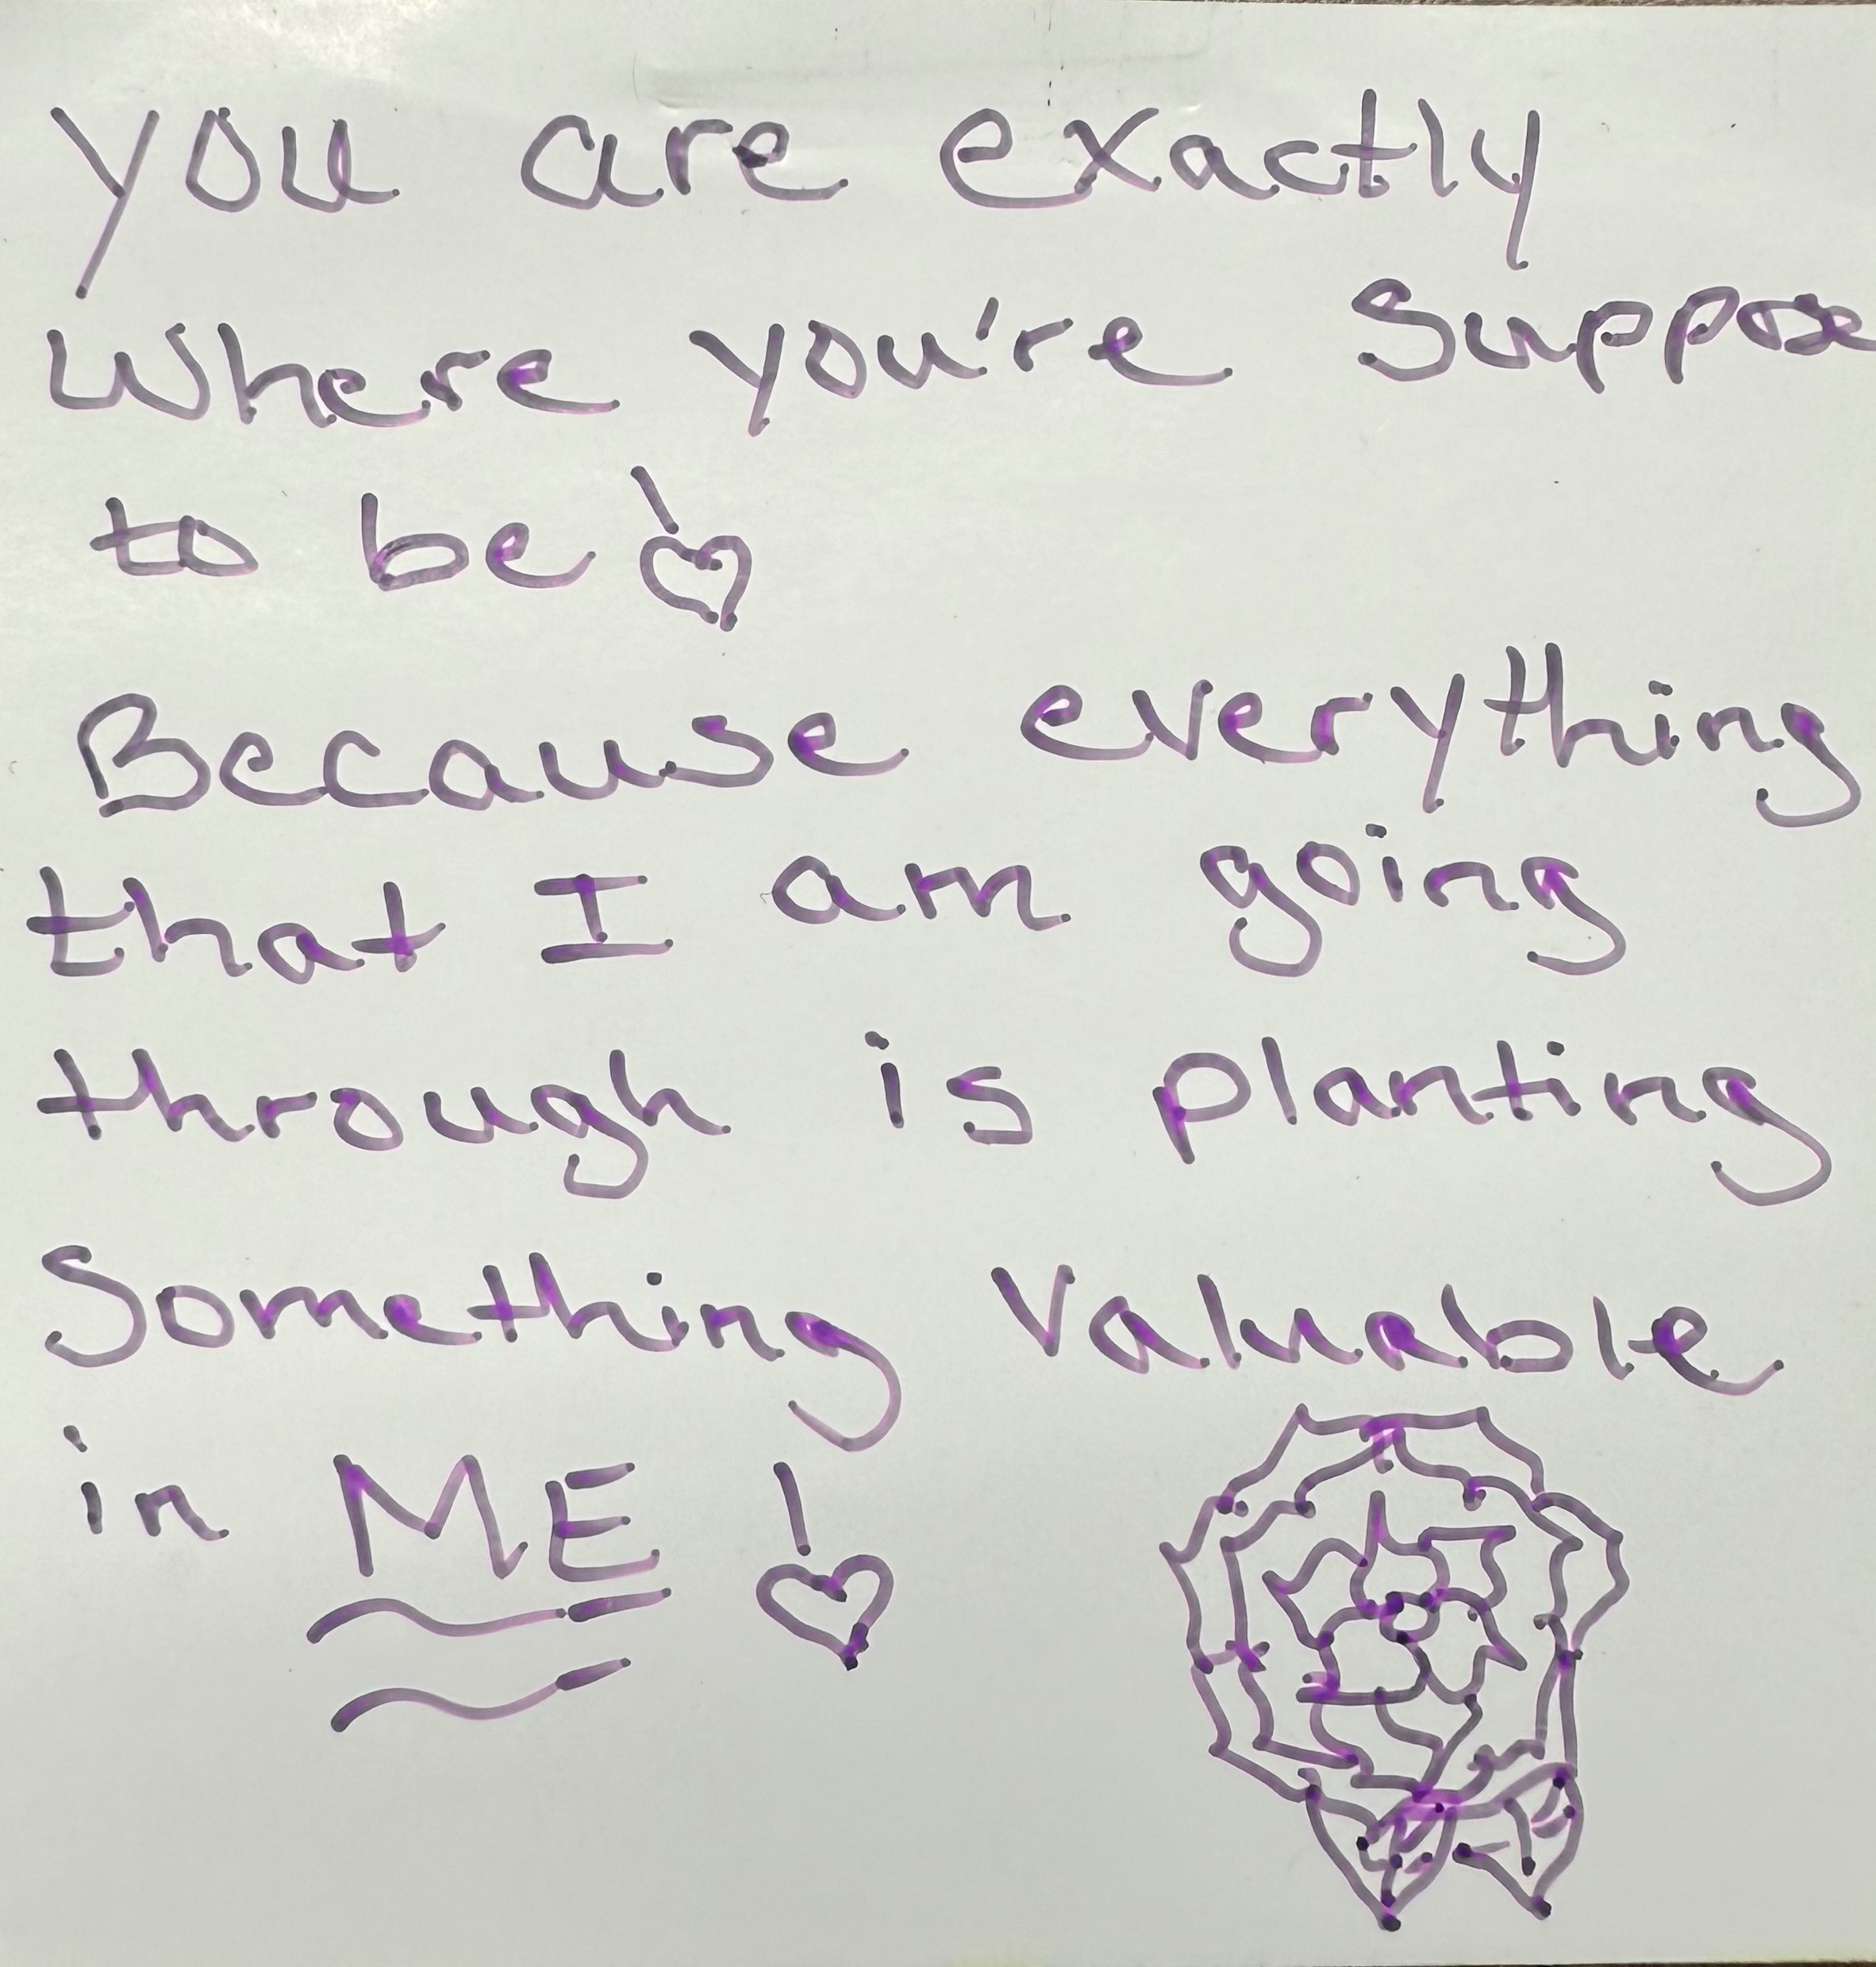 you are exactly
Where you're Suppose
to be!
Because everything
that I am going
through is planting
Something Valuable
in ME!